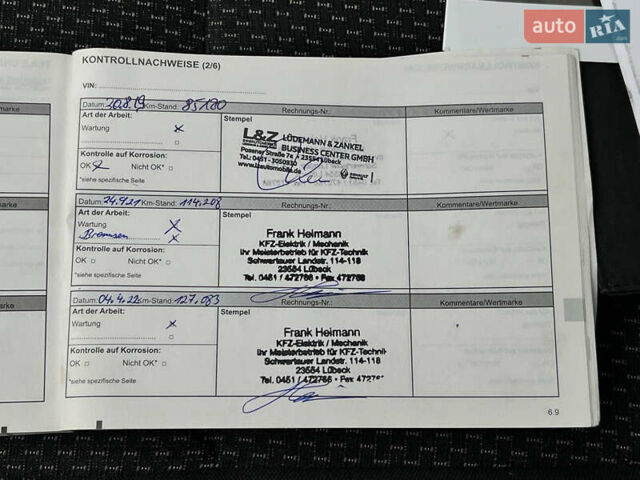 auto RIA.com
KONTROLLNACHWEISE (2/6)
VIN:
Datum: 20.8.19 Km-Stand: 85180 Rechnungs-Nr.: Kommentare/Wertmarke
Art der Arbeit: Stempel
Wartung x
L&Z LÜDEMANN & ZANKEL
BUSINESS CENTER GMBH
Posener Straße 7a, 23554 Lübeck
Tel.: 0451 - 3050930
Kontrolle auf Korrosion:
OK Nicht OK* □
*siehe spezifische Seite
Datum: 24.9.21 Km-Stand: 114.208 Rechnungs-Nr.: Kommentare/Wertmarke
Art der Arbeit: Stempel
Wartung x
Bremsen x
Frank Heimann
KFZ-Elektrik / Mechanik
Ihr Meisterbetrieb für KFZ-Technik
Schwertauer Landstr. 114-118
23554 Lübeck
Tel. 0451 / 472766 • Fax 472768
Kontrolle auf Korrosion:
OK □ Nicht OK* □
*siehe spezifische Seite
Datum: 04.4.22 Km-Stand: 127.083 Rechnungs-Nr.: Kommentare/Wertmarke
Art der Arbeit: Stempel
Wartung x
Frank Heimann
KFZ-Elektrik / Mechanik
Ihr Meisterbetrieb für KFZ-Technik
Schwertauer Landstr. 114-118
23554 Lübeck
Tel. 0451 / 472766 • Fax
Kontrolle auf Korrosion:
OK □ Nicht OK* □
*siehe spezifische Seite
6.9